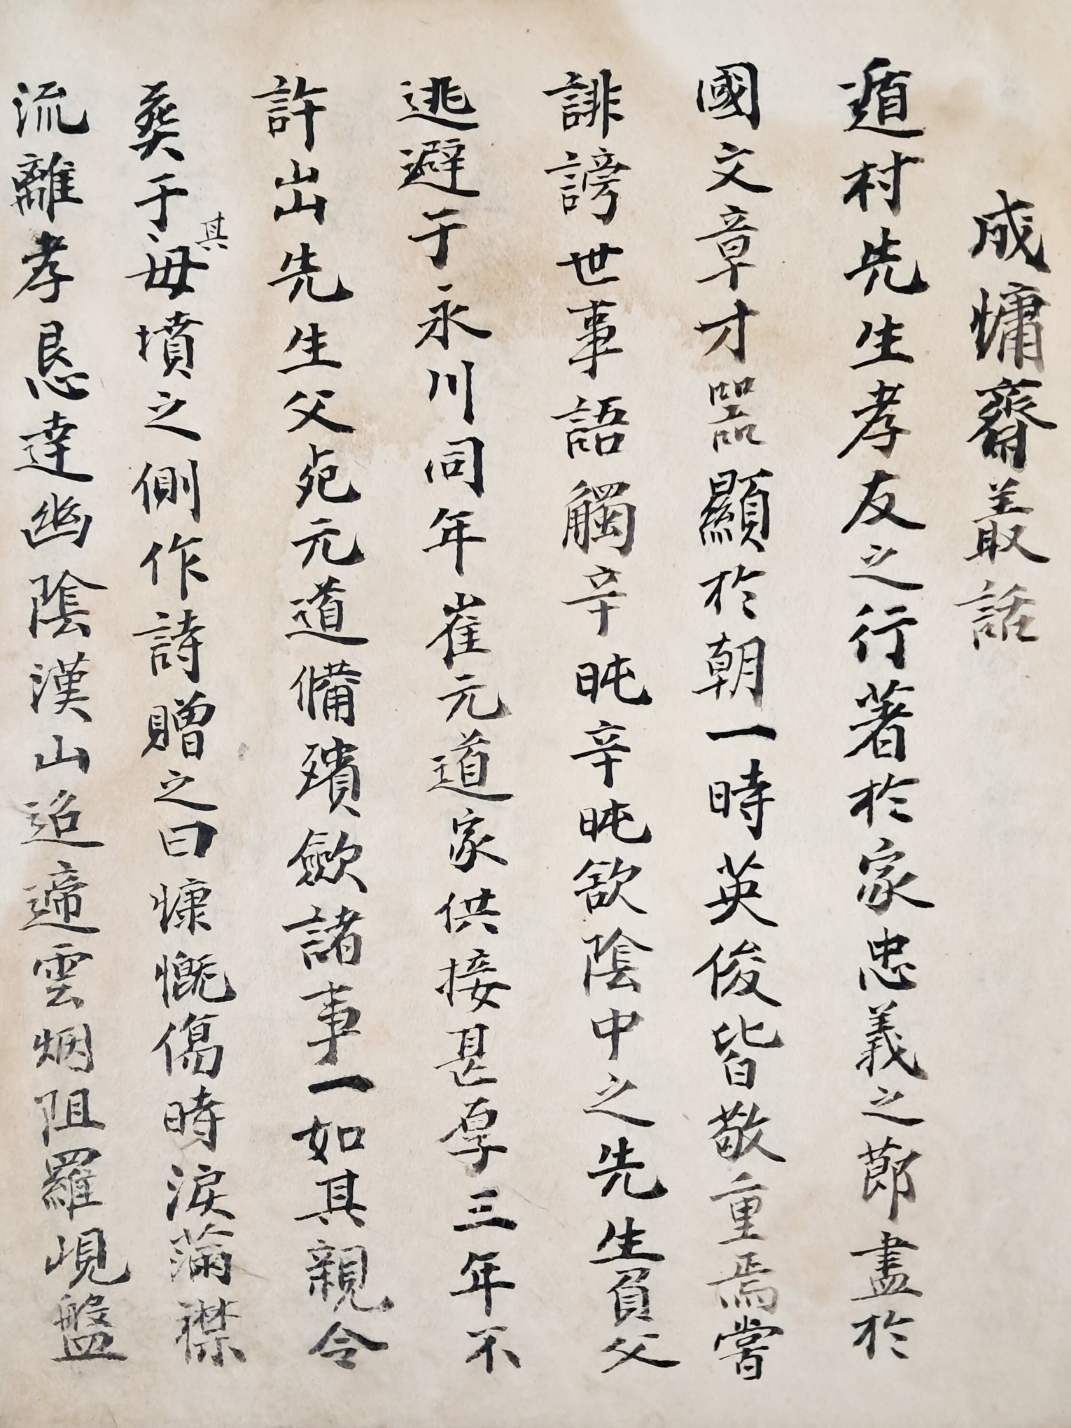 成慵齋叢話
遁村先生孝友之行著於家忠義之節盡於
國文章才器顯於朝一時英俊皆敬重焉嘗
誹謗世事語觸辛旽辛旽欲陰中之先生負父
逃避于永川同年崔元道家供接甚厚三年不
許出先生父死元道備殯歛諸事一如其親令
葬于其母墳之側作詩贈之曰慷慨傷時淚滿襟
流離孝恳達幽陰漢山迢遞雲烟阻羅峴盤